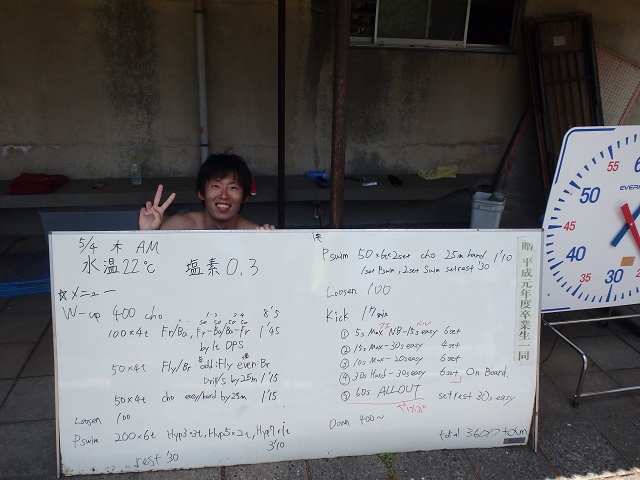 5/4 木 AM
水温22℃ 塩素0.3
☆メニュー
W-up 400 cho 8'5
100×4t Fr/Ba, Fr-Ba/Ba-Fr 1'45
by 1t DPS
50×4t Fly/Br odd:Fly even:Br
Drill/s by 25m 1'15
50×4t cho easy/hard by 25m 1'15
Loosen 100
Pswim 200×6t Hyp3×3t, Hyp5×2t, Hyp7×1t
3'10
rest '30
Pswim 50×6t×2set cho 25m hard 1'10
1set Pswim, 2set Swim setrest '30
Loosen 100
Kick 17min
① 5s Max NB-15s easy 6set
② 15s Max-30s easy 4set
③ 10s Max-20s easy 6set
④ 30s Hard-30s easy 6set On Board
⑤ 60s ALLOUT setrest 30s easy
Down 400~
total 3600+αm
贈 平成元年度卒業生一同
60
55
50
45
40
35
30
25